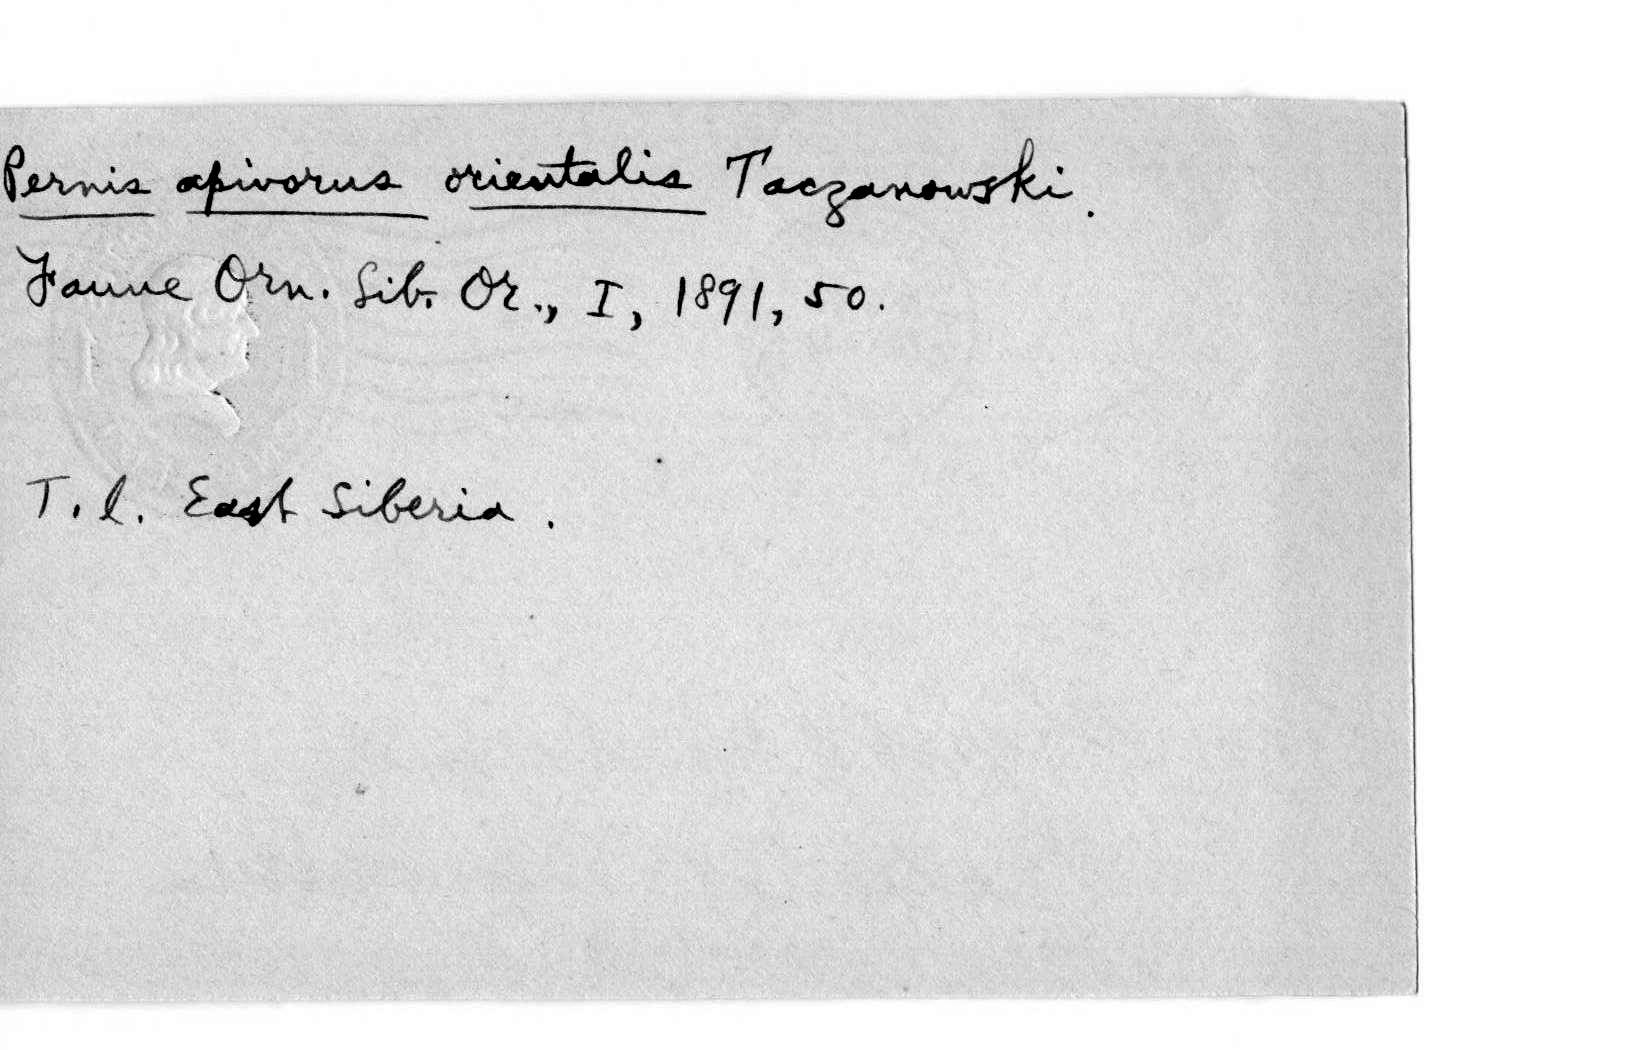 Pernis apivorus orientalis Taczanowski.
Faune Orn. Sib. Or., I, 1891, 50.
T. l. East Siberia.